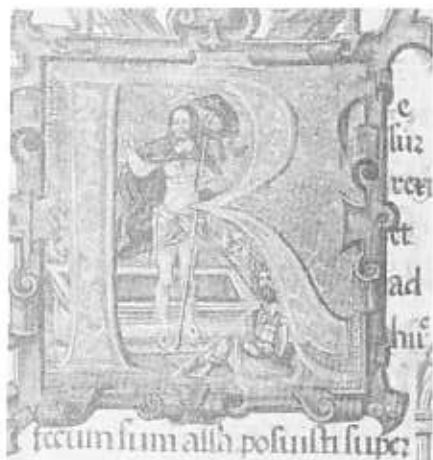 R
e
sur
rexi
et
ad
huc
tecum sum alla posuisti super